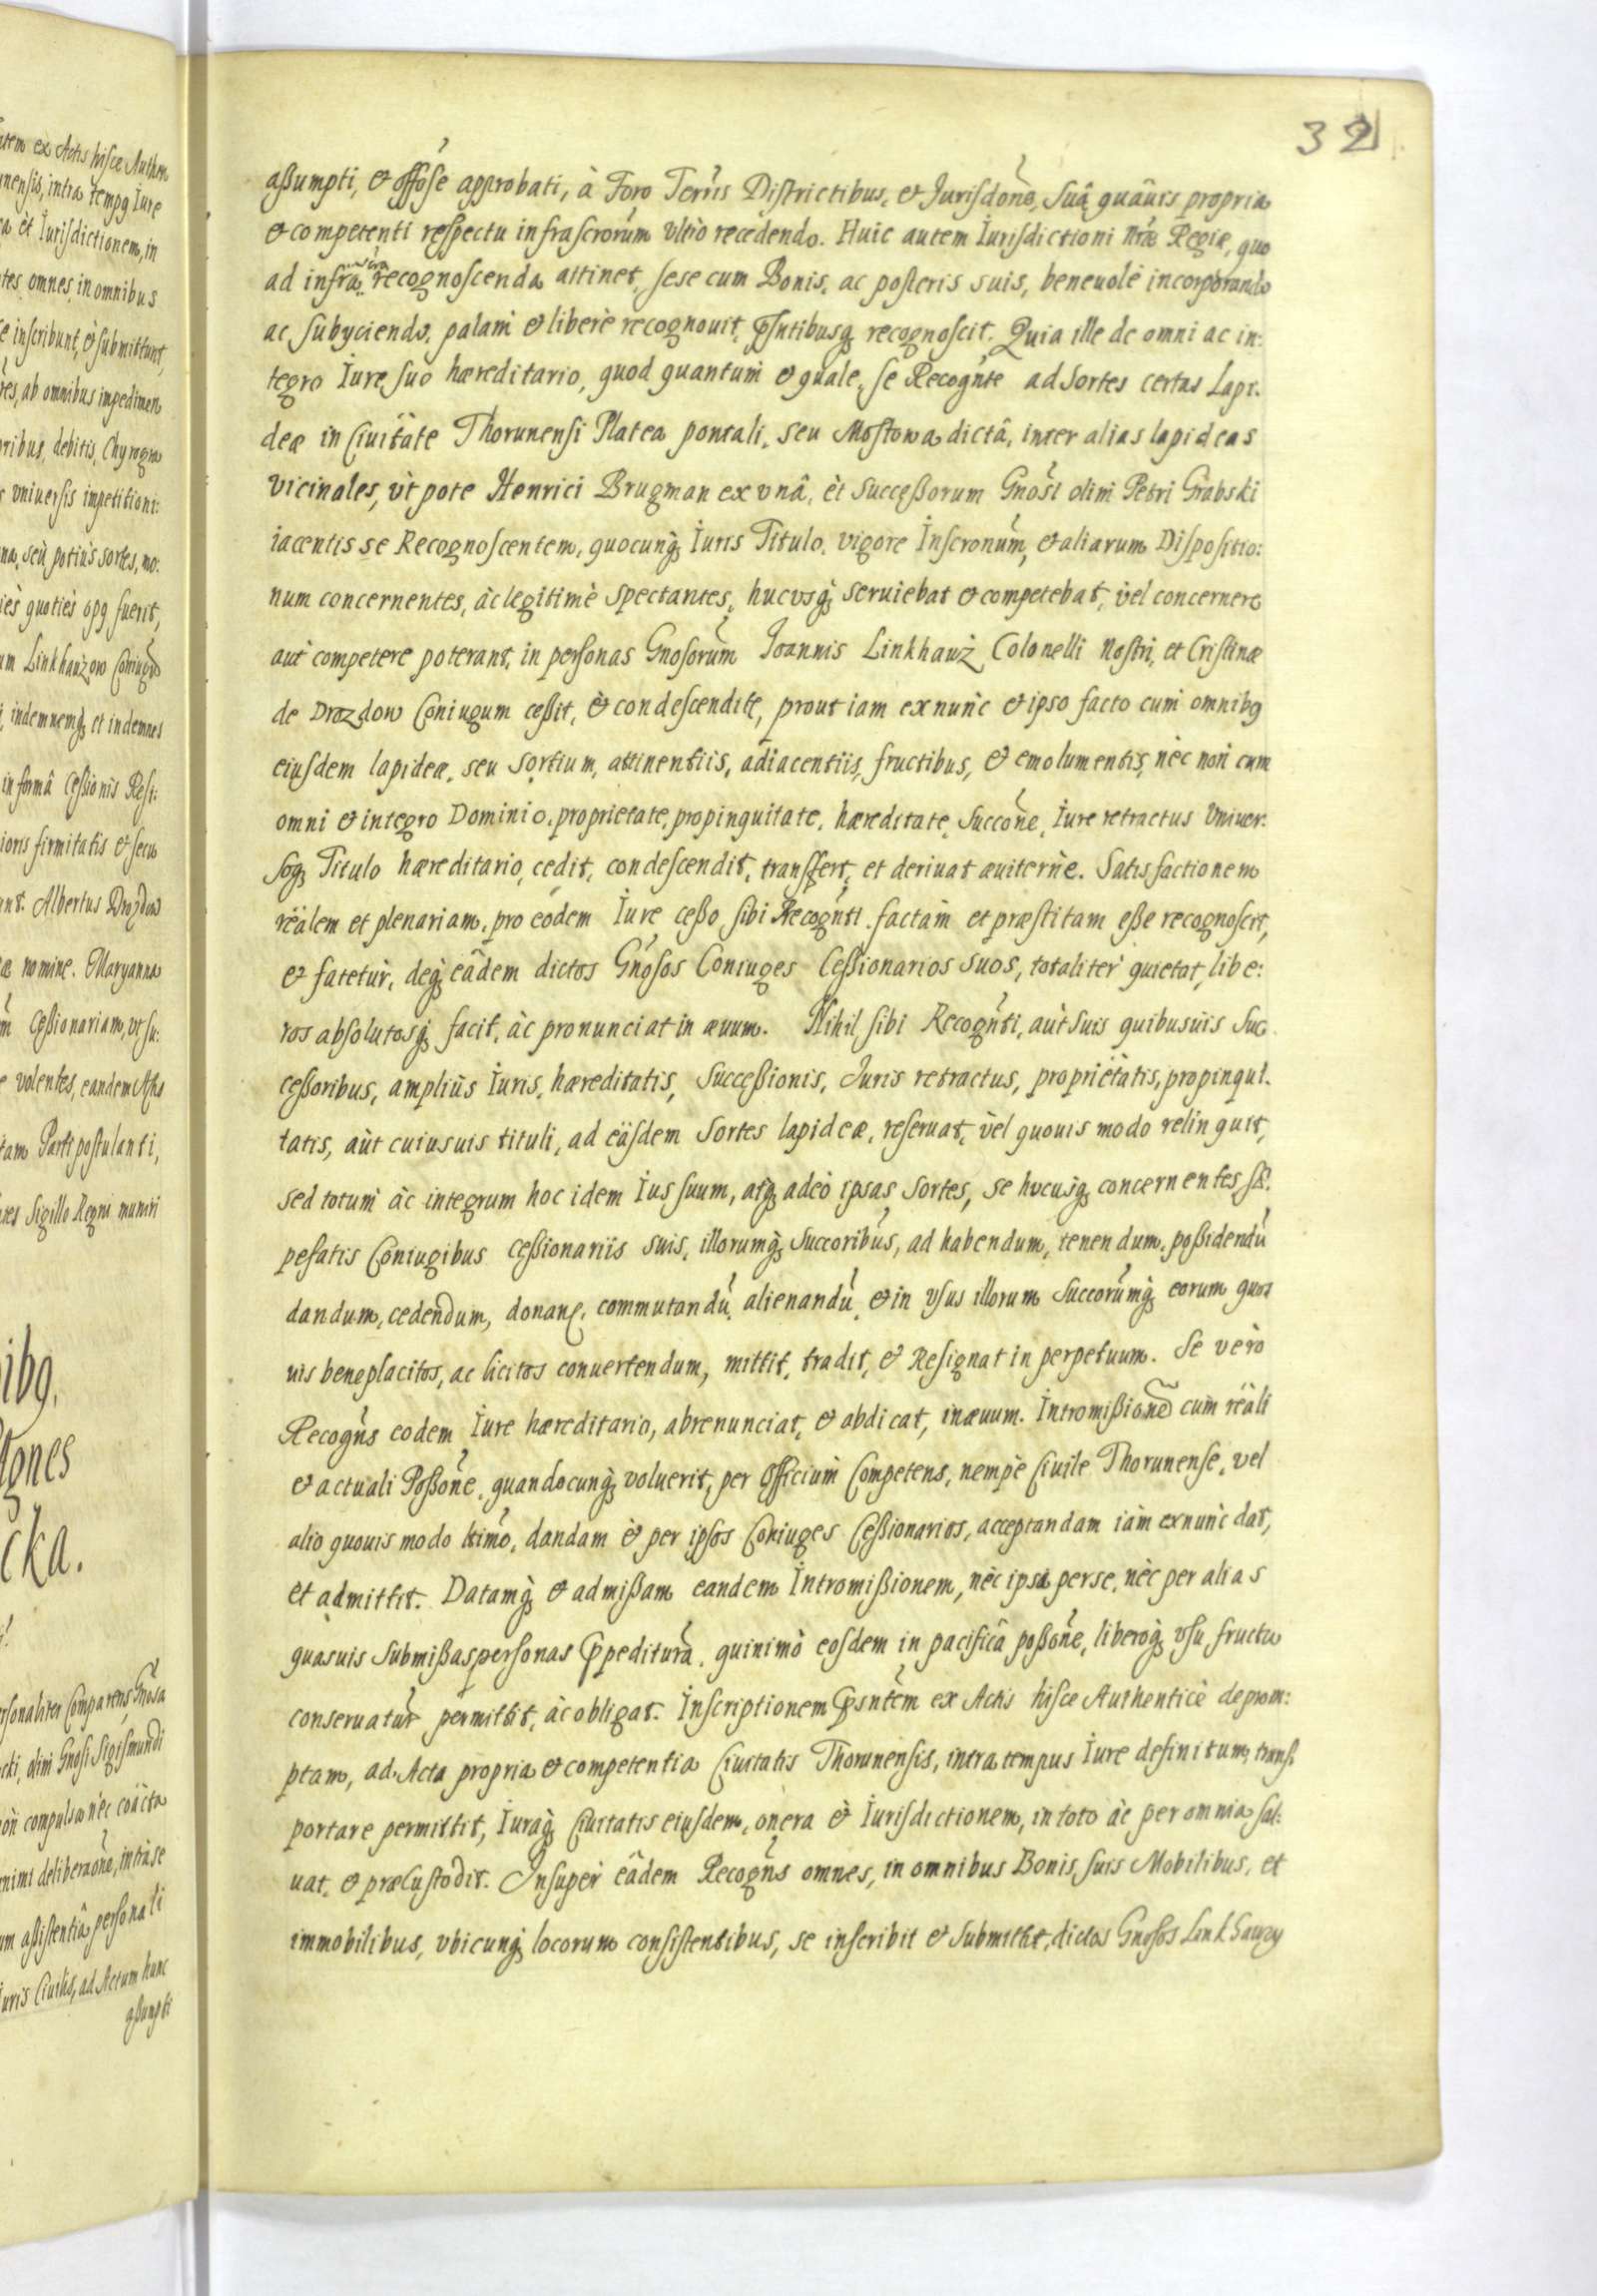 32
aßumpti, & offose approbati, à Foro Terris Districtibus, & Jurisdone, suâ quâuis propria
& competenti respectu infrascrorum vltro recedendo. Huic autem Iurisdictioni nræ Regiæ, quo
ad infra recognoscenda attinet, sese cum Bonis, ac posteris suis, beneuolè incorporando
ac subyciendo, palam & liberè recognouit, pñtibusq recognoscit. Quia ille de omni ac in:
tegro Iure suo hæreditario, quod quantum & quale, se Recognte ad Sortes certas Lapi-
deæ in Ciuitate Thorunensi Platea pontali, seu Mostowa dictâ, inter alias lapideas
vicinales, vt pote Henrici Brugman ex vnâ, èt Succeßorum Gnosi olim Petri Grabski
iacentis se Recognoscentem, quocunq Iuris Titulo, vigore Inscronum, & aliarum Dispositio:
num concernentes, àc legitimè spectantes, hucvsq seruiebat & competebat, vèl concernere
aut competere poterant, in personas Gnosorum Joannis Linkhauż Colonelli Nostri, et Cristinæ
de Drozdow Coniugum ceßit, & condescendit, prout iam ex nunc & ipso facto cum omnibg
eiusdem lapideæ, seu sortium, attinentiis, adiacentiis, fructibus, & emolumentis, nèc non cum
omni & integro Dominio, proprietate, propinquitate, hæreditate, Succone, Iure retractus Vniuer-
soq Titulo hæreditario, cedit, condescendit, transfert, et deriuat æuiternè. Satisfactionem
reälem et plenariam, pro eodem Iure ceßo sibi Recognti factam et præstitam eße recognoscit,
& fatetur, deq eâdem dictos Gnosos Coniuges Ceßionarios suos, totaliter quietat, libe:
ros absolutosq facit, àc pronunciat in æuum. Nihil sibi Recognti, aùt suis quibusuis Suc
ceßoribus, ampliùs Iuris, hæreditatis, Succeßionis, Juris retractus, proprietatis, propinqui-
tatis, aùt cuiusuis tituli, ad eäsdem Sortes lapideæ, reseruat, vèl quouis modo relinquit,
sed totum àc integrum hoc idem Ius suum, atq adeò ipsas Sortes, se hucusq concernentes sæ-
pefatis Coniugibus Ceßionariis suis, illorumq Succoribus, ad habendum, tenendum, poßidendũ
dandum, cedendum, donand, commutandũ, alienandũ, & in vsus illorum Succorumq eorum quos
uis beneplacitos, ac licitos conuertendum, mittit, tradit, & Resignat in perpetuum. Se verò
Recogns eodem Iure hæreditario, abrenunciat, & abdicat, in æuum. Intromißione cum reäli
& actuali Poßone, quandocunq voluerit, per Officium Competens, nempè Ciuile Thorunense, vel
alio quouis modo ltimo, dandam & per ipsos Coniuges Ceßionarios, acceptandam iàm exnunc dat,
et admittit. Datamq & admißam eandem Intromißionem, nèc ipsa per se, nèc per alias
quasuis submißas personas Ppeditura, quinimò eosdem in pacificâ poßone, liberoq vsu fructu
conseruatur permittit, àc obligat. Inscriptionem Psntem ex Actis hisce Authenticè deprom:
ptam, ad Acta propria & competentia Ciuitatis Thorunensis, intra tempus Iure definitum, trans-
portare permittit, Iuraq Ciuitatis eiusdem, onera & Iurisdictionem, in toto àc per omnia sal:
uat, & præcustodit. Insuper eâdem Recogns omnes, in omnibus Bonis, suis Mobilibus, et
immobilibus, vbicunq locorum consistentibus, se inscribit & submittit, dictos Gnosos Linkhauzy